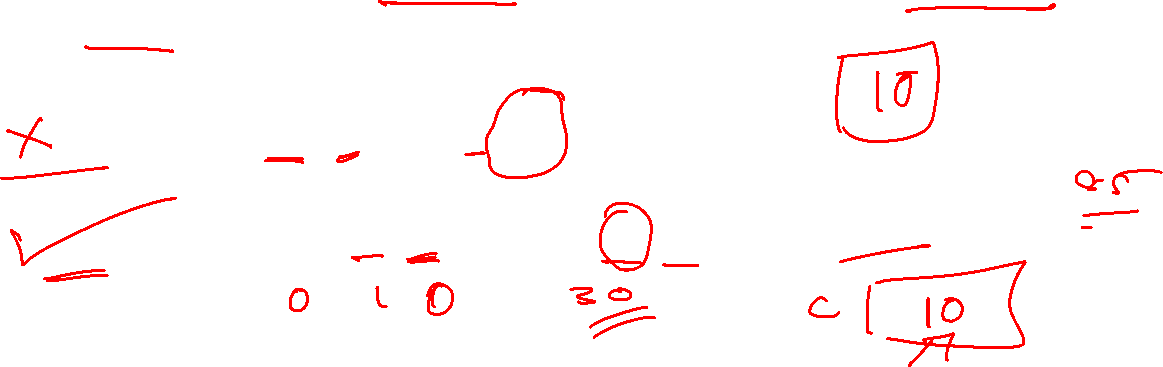 10
x
0 1 0 30 c 10